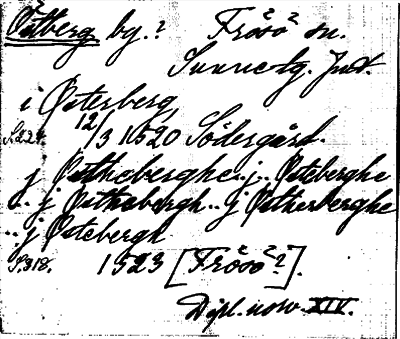 Östberg by.? Frösö? sn.
Sunne tg. Jmtl.
i Østerberg,
S.224. 12/3 1520 Södergård.
j Østheberghe.. j. Østeberghe
.. j Østhebergh.. j Østherberghe
.. j Østebergh
S.318. 1523 [Frösö?].
Dipl. norv. XIV.